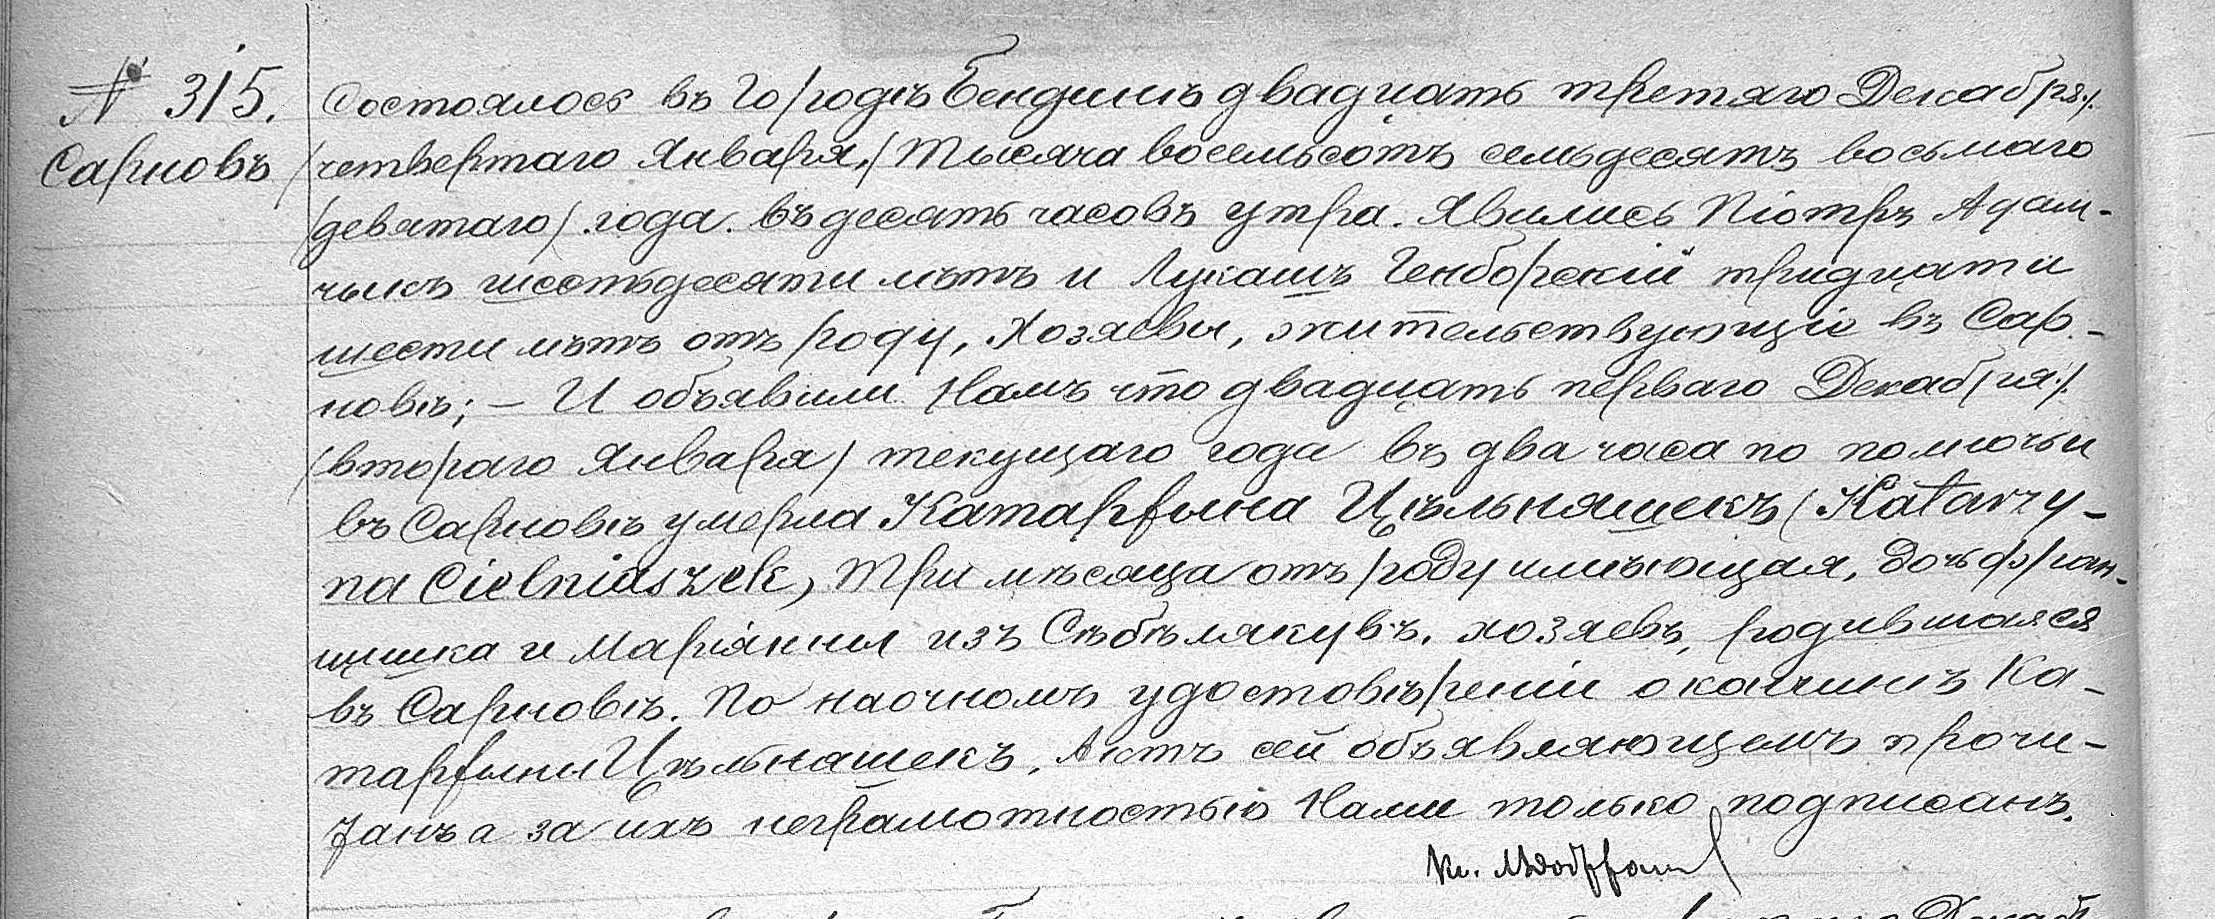 № 315.
Сарновъ
Состоялось въ Городѣ Бендинѣ двадцать третяго Декабря /.
/четвертаго Января,/ Тысяча восемьсотъ семьдесятъ восьмаго
/девятаго/ года. въ десять часовъ утра. Явились Піотръ Адам-
чикъ шестьдесяти лѣтъ и Лукашъ Генборскій тридцати
шести лѣтъ отъ роду, Хозяевы, жительствующіе въ Сар-
новѣ; – И объявили Намъ что двадцать перваго Декабря /.
/втораго Января/ текущаго года въ два часа по полночьи
въ Сарновѣ умерла Катарżына Цѣльняшекъ (Katarzy-
na Cielniaszek, три мѣсяца отъ роду имѣющая, дочь Фран-
цишка и Маріянны изъ хозяевъ, родившаяся
въ Сарновѣ. По наочномъ удостовѣреніи о кончинѣ Ка-
таржины Цѣльнашекъ, Актъ сей объявляющемъ прочи-
танъ а за ихъ неграмотностью Нами только подписанъ.
Кс.